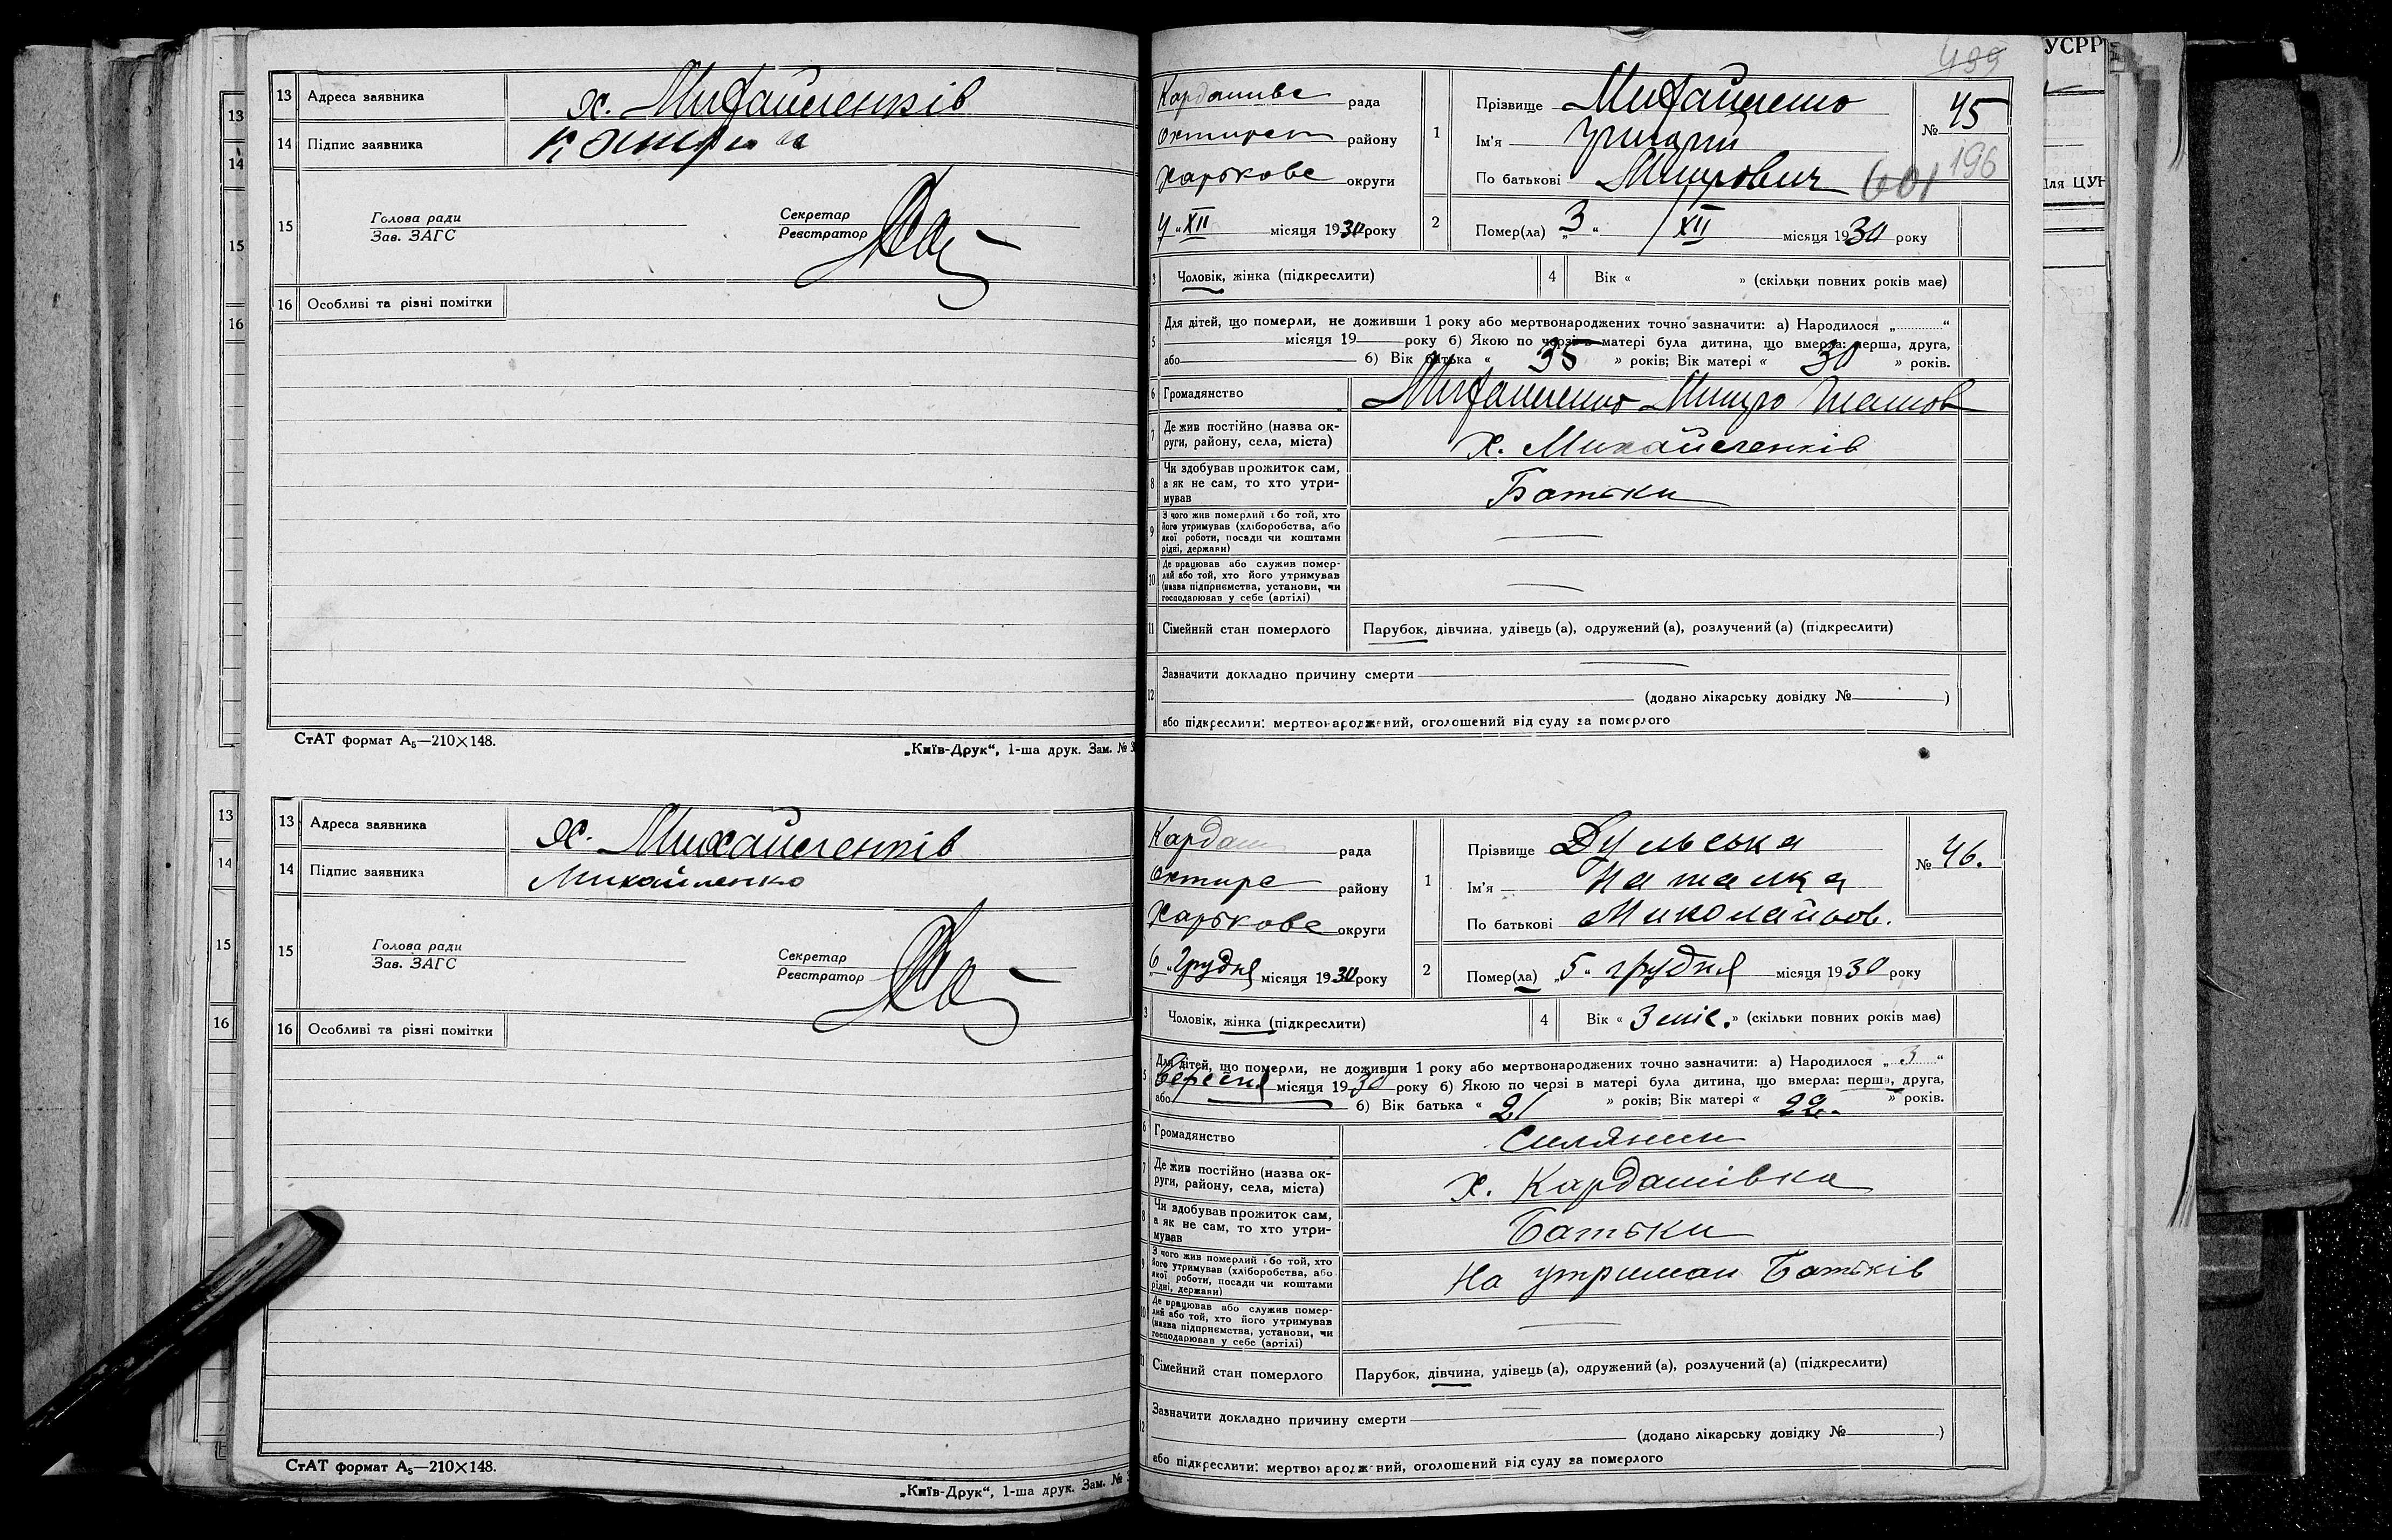 13 Адреса заявника х. Михайленків
14 Підпис заявника
15 Голова ради Секретар
Зав. ЗАГС Реєстратор
16 Особливі та різні помітки
СтАТ формат А5—210×148.
„Київ-Друк“, 1-ша друк. Зам. №
13 Адреса заявника х. Михайленків
14 Підпис заявника Михайленко
15 Голова ради Секретар
Зав. ЗАГС Реєстратор
16 Особливі та різні помітки
СтАТ формат А5—210×148.
„Київ-Друк“, 1-ша друк. Зам. №
499
Кардашивс рада
Охтирск району
Харькове округи
4 „XII місяця 1930 року
1 Прізвище Михайленко
Ім'я Григорій
По батькові Митрович
№ 45
601 196
2 Помер(ла) „3“ XII місяця 1930 року
3 Чоловік, жінка (підкреслити) 4 Вік « » (скільки повних років має)
5 Для дітей, що померли, не доживши 1 року або мертвонароджених точно зазначити: а) Народилося „ “
місяця 19 року б) Якою по черзі в матері була дитина, що вмерла: перша, друга,
або б) Вік батька « 35 » років; Вік матері « 30 » років.
6 Громадянство Михайленко Митро
7 Де жив постійно (назва ок-
руги, району, села, міста) х. Михайленків
8 Чи здобував прожиток сам,
а як не сам, то хто утри-
мував Батьки
9 З чого жив померлий або той, хто
його утримував (хліборобства, або
якої роботи, посади чи коштами
рідні, держави)
10 Де працював або служив помер-
лий або той, хто його утримував
(назва підприємства, установи, чи
господарював у себе (артілі)
11 Сімейний стан померлого Парубок, дівчина, удівець (а), одружений (а), розлучений (а) (підкреслити)
12 Зазначити докладно причину смерти
(додано лікарську довідку № )
або підкреслити: мертвонароджений, оголошений від суду за померлого
Кардаш рада
Охтирс району
Харькове округи
6 „Грудня місяця 1930 року
1 Прізвище Дульська
Ім'я Наталка
По батькові Миколайов.
№ 46.
2 Помер(ла) „5“ грудня місяця 1930 року
3 Чоловік, жінка (підкреслити) 4 Вік « 3 міс. » (скільки повних років має)
5 Для дітей, що померли, не доживши 1 року або мертвонароджених точно зазначити: а) Народилося „ 3 “
Вересня місяця 1930 року б) Якою по черзі в матері була дитина, що вмерла: перша, друга,
або б) Вік батька « 21 » років; Вік матері « 22. » років.
6 Громадянство Силянин
7 Де жив постійно (назва ок-
руги, району, села, міста) х. Кардашівка
8 Чи здобував прожиток сам,
а як не сам, то хто утри-
мував Батьки
9 З чого жив померлий або той, хто
його утримував (хліборобства, або
якої роботи, посади чи коштами
рідні, держави) На утриман Батьків
10 Де працював або служив помер-
лий або той, хто його утримував
(назва підприємства, установи, чи
господарював у себе (артілі)
11 Сімейний стан померлого Парубок, дівчина, удівець (а), одружений (а), розлучений (а) (підкреслити)
12 Зазначити докладно причину смерти
(додано лікарську довідку № )
або підкреслити: мертвонароджений, оголошений від суду за померлого
УСРР
Для ЦУН
13
14
15
16
13
14
15
16